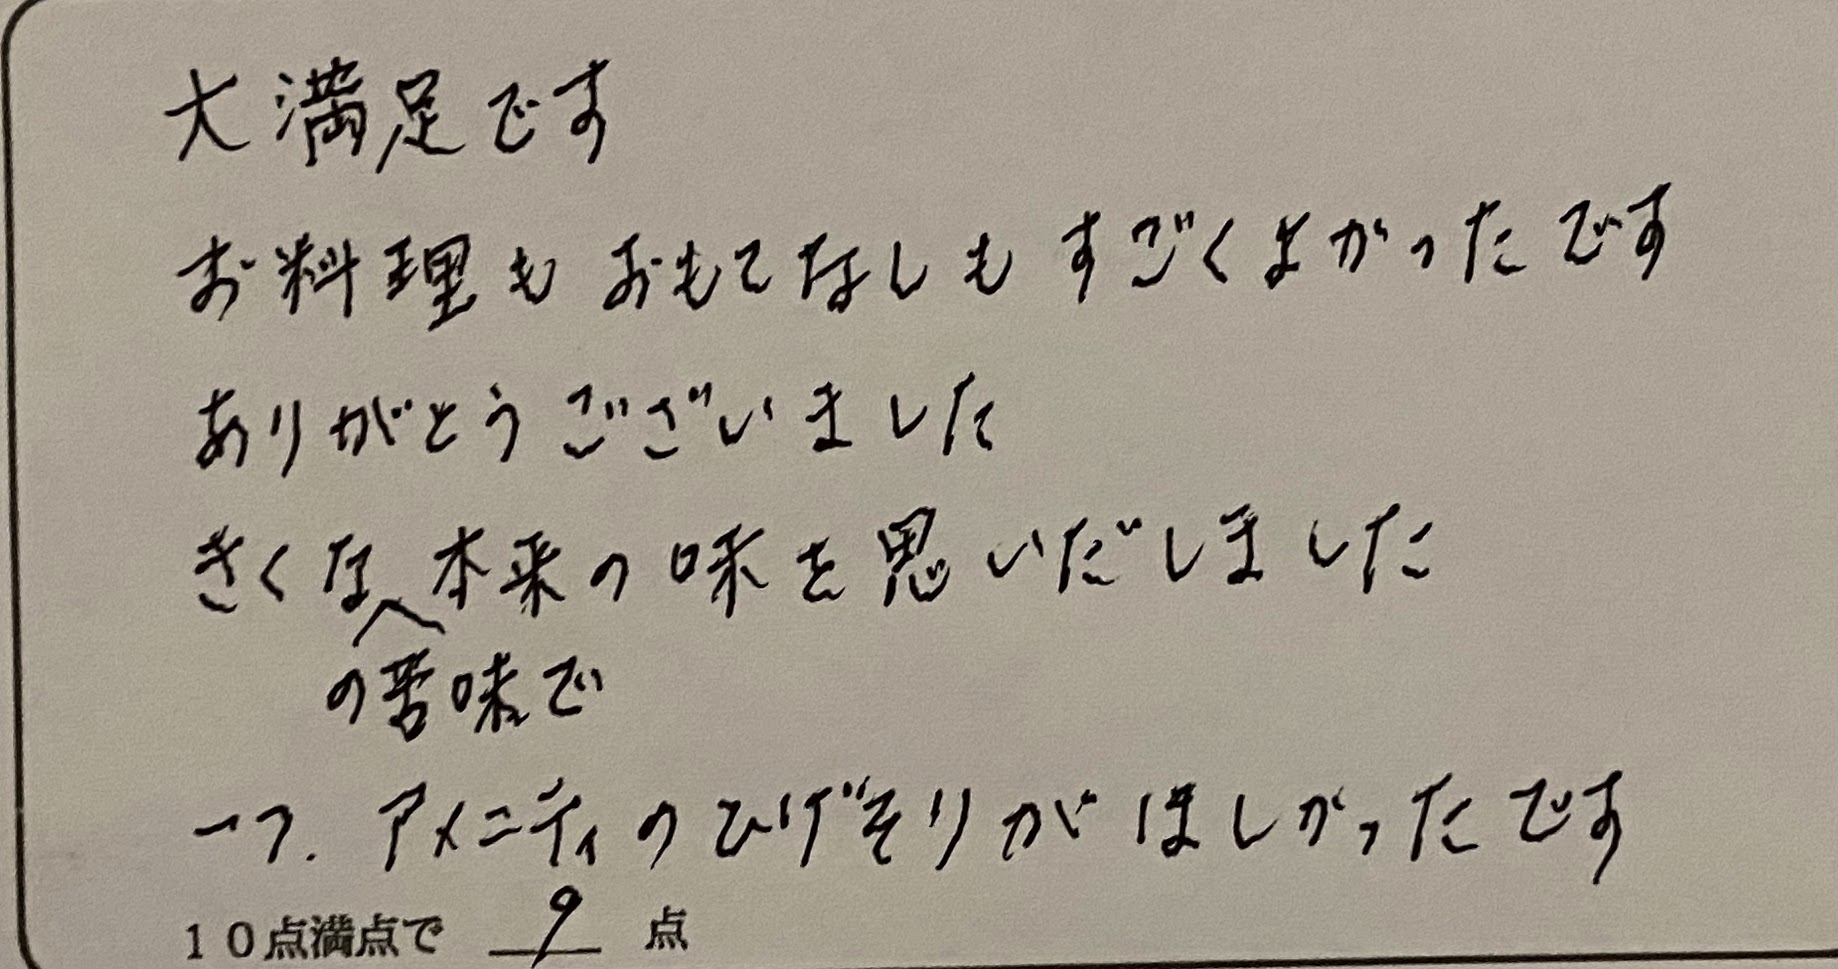 大満足です
お料理もおもてなしもすごくよかったです
ありがとうございました
きくな本来の味を思いだしました
の苦味で
一つ. アメニティのひげそりがほしかったです
10点満点で 9 点